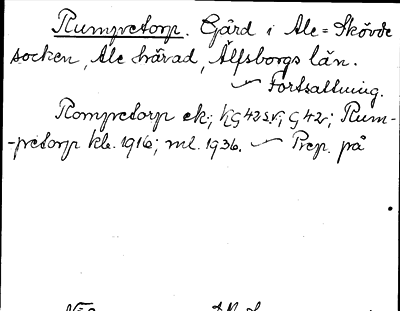 Rumpretorp. Gård i Ale-Skövde
socken, Ale härad, Älfsborgs län.
— Fortsättning.
Rompretorp ek; KG 42 s.v; G 42r; Rum-
-pretorp kb. 1916; ml. 1936. — Prep. på